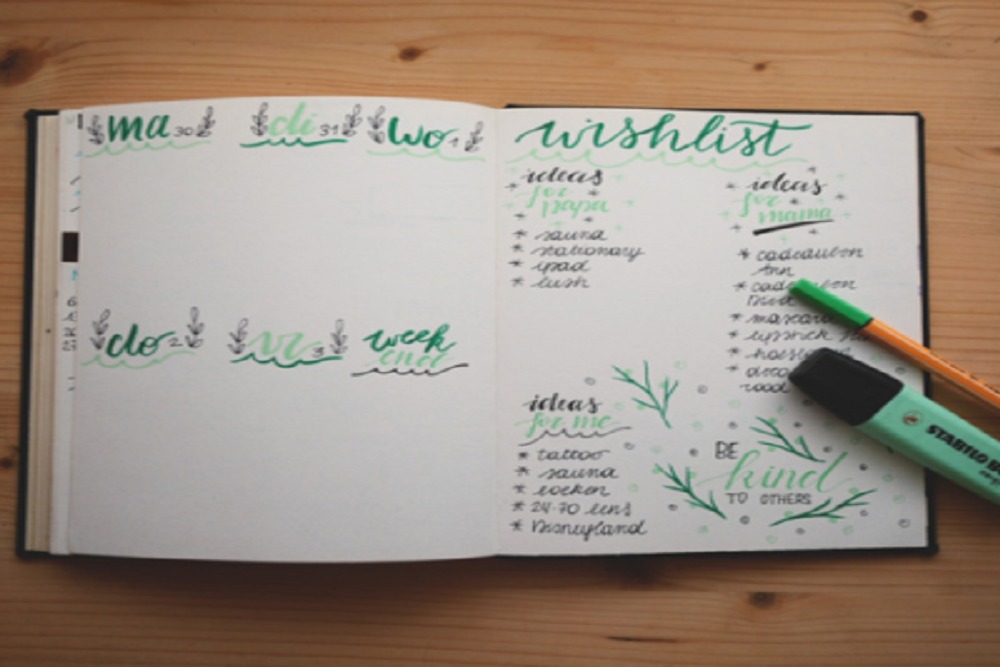 ma 30
di 31
wo 1
do 2
vr 3
week
end
wishlist
ideas
for
papa
* sauna
* stationary
* ipad
* lush
ideas
for
mama
* cadeaubon
* mascara
* lipstick
ideas
for me
* tattoo
* sauna
* 24-70 lens
* Disneyland
BE
kind
TO OTHERS
STABILO